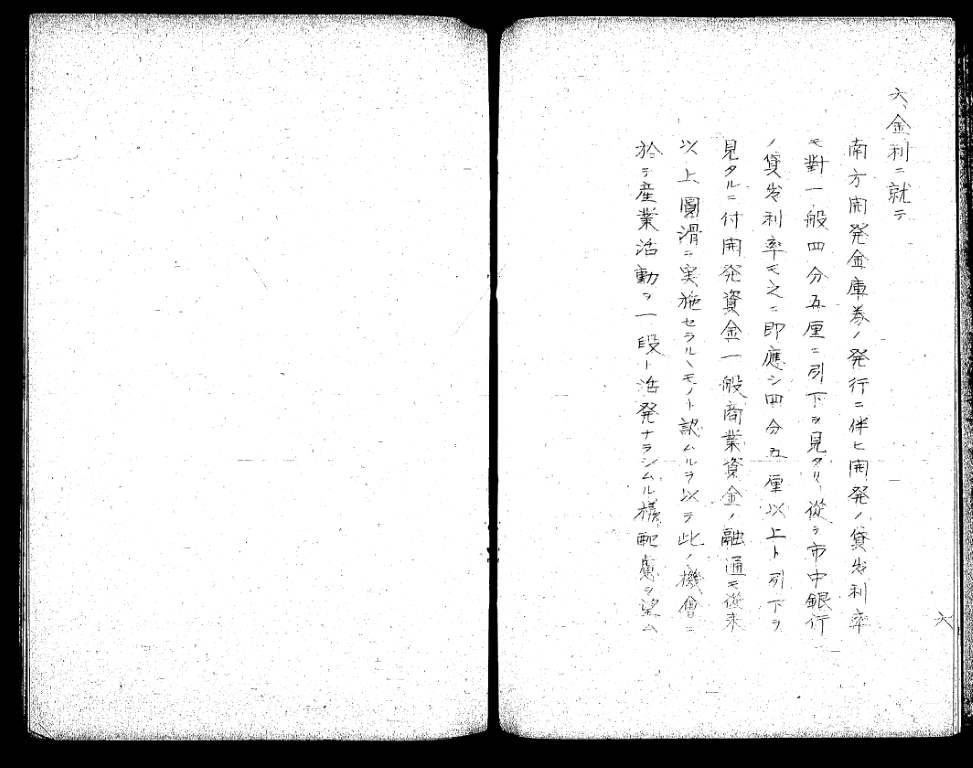 六、金利ニ就テ
南方開発金庫券ノ発行ニ伴ヒ開発ノ貸出利率
モ對一般四分五厘ニ引下ヲ見タリ、從テ市中銀行
ノ貸出利率モ之ニ即應シ四分五厘以上ト引下ヲ
見タルニ付開発資金一般商業資金ノ融通モ從来
以上圓滑ニ実施セラルヽモノト認ムルヲ以テ此ノ機會ニ
於テ産業活動ヲ一段ト活発ナラシムル様配慮ヲ望ム
六